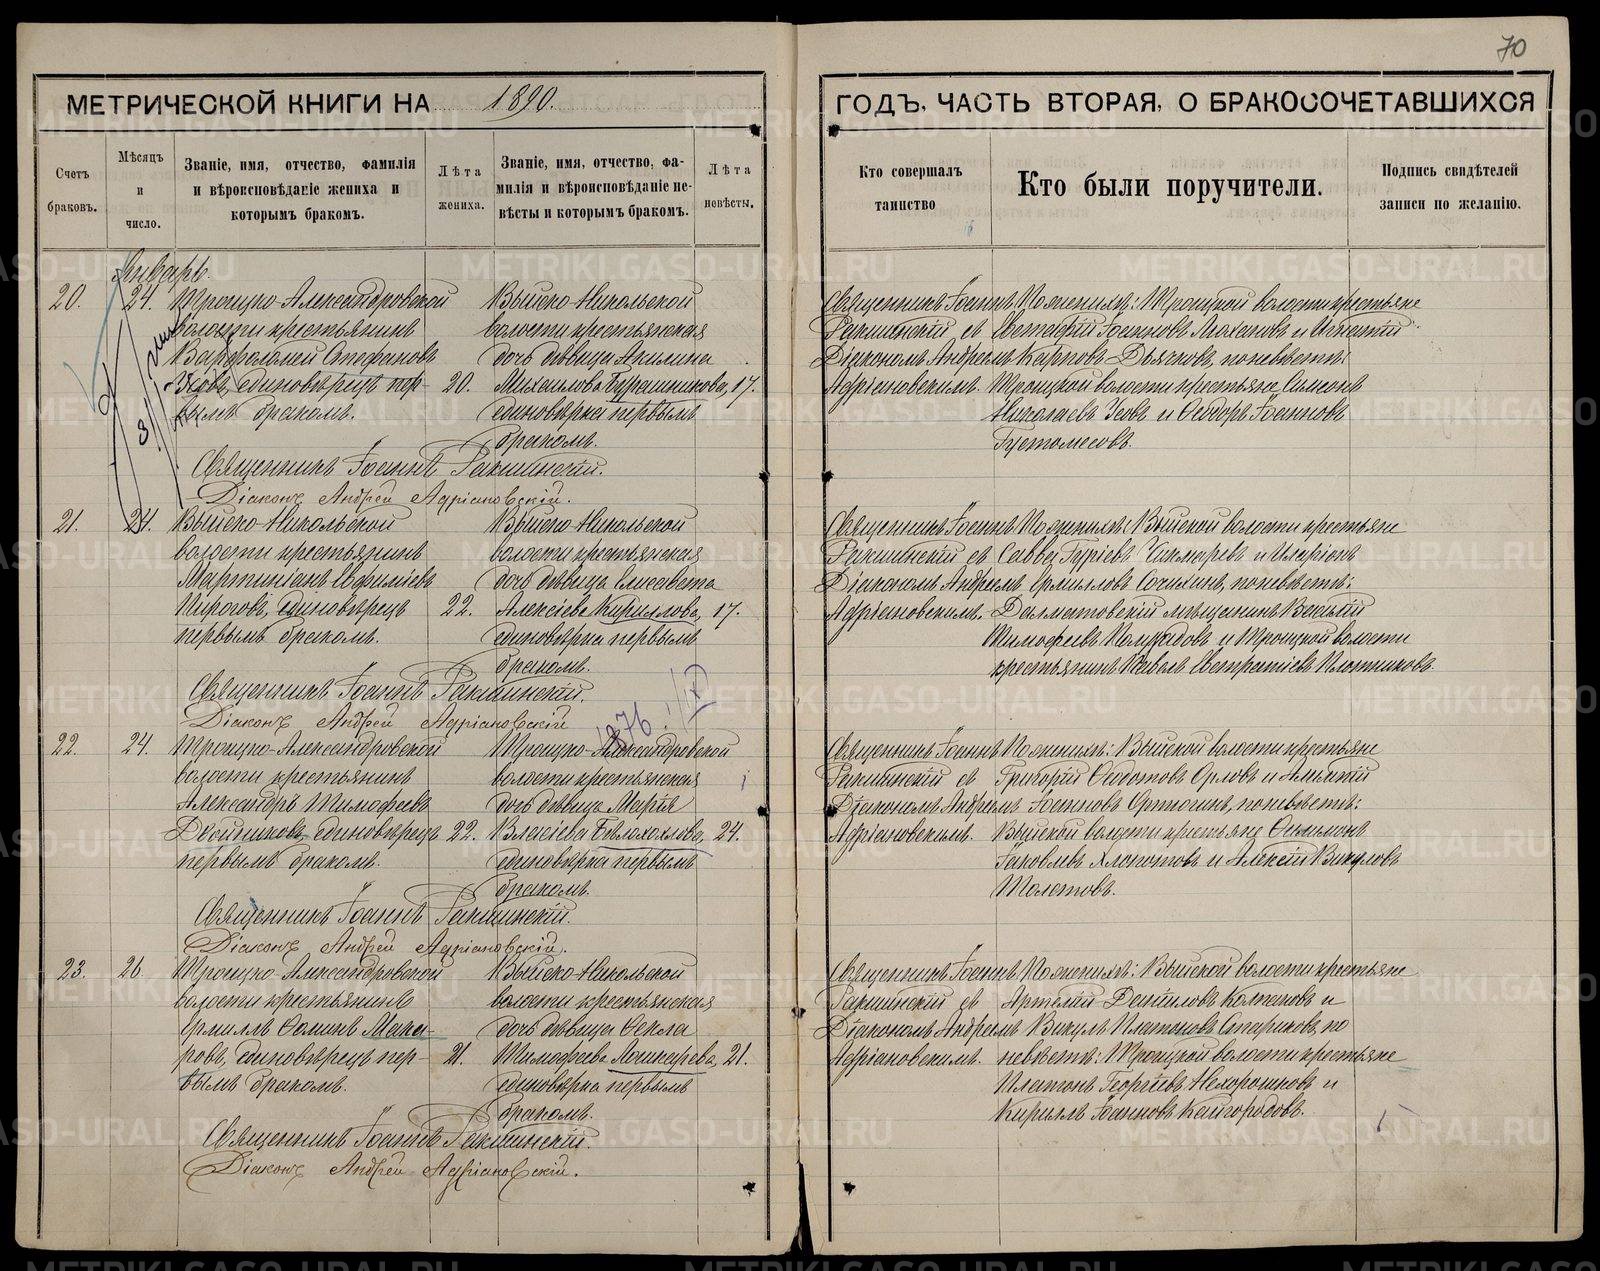 70
МЕТРИЧЕСКОЙ КНИГИ НА 1890.
ГОДЪ, ЧАСТЬ ВТОРАЯ, О БРАКОСОЧЕТАВШИХСЯ
Счетъ браковъ.
Мѣсяцъ и число.
Званіе, имя, отчество, фамилія и вѣроисповѣданіе жениха и которымъ бракомъ.
Лѣта жениха.
Званіе, имя, отчество, фамилія и вѣроисповѣданіе невѣсты и которымъ бракомъ.
Лѣта невѣсты.
Кто совершалъ таинство
Кто были поручители.
Подпись свидѣтелей записи по желанію.
Январь.
20.
24.
Троицко-Александровской
волости крестьянинъ
Варфоломей Стефановъ
единовѣрецъ пер-
вымъ бракомъ.
20.
Выйско-Никольской
волости крестьянская
дочь дѣвица Акилина
Михаилова Бурашникова,
единовѣрка первымъ
бракомъ.
17.
Священникъ Іоаннъ
Ракшинскій съ
Діакономъ Андреемъ
Адріановскимъ.
По женихѣ: Троицкой волости крестьяне
Евстафій Іоанновъ и Игнатій
Карповъ Дьячковъ, по невѣстѣ:
Троицкой волости крестьяне Симеонъ
Николаевъ Усовъ и Ѳеодоръ Іоанновъ
Густомесовъ.
Священникъ Іоаннъ Ракшинскій.
Діаконъ Андрей Адріановскій.
21.
24.
Выйско-Никольской
волости крестьянинъ
Мартиніанъ
Пироговъ, единовѣрецъ
первымъ бракомъ.
22.
Выйско-Никольской
волости крестьянская
дочь дѣвица Елисавета
Алексіева Кириллова,
единовѣрка первымъ
бракомъ.
17.
Священникъ Іоаннъ
Ракшинскій съ
Діакономъ Андреемъ
Адріановскимъ.
По женихѣ: Выйской волости крестьяне
Савва Гуріевъ Чикмаревъ и Иларіонъ
Ермиловъ по невѣстѣ:
Далматовскій мѣщанинъ Василій
Тимофеевъ и Троицкой волости
крестьянинъ Павелъ Евстратіевъ Плотниковъ.
Священникъ Іоаннъ Ракшинскій.
Діаконъ Андрей Адріановскій
1876
22.
24.
Троицко-Александровской
волости крестьянинъ
Александръ Тимофеевъ
Десятниковъ, единовѣрецъ
первымъ бракомъ.
22.
Троицко-Александровской
волости крестьянская
дочь дѣвица Марія
Власіева Бѣлохохлова,
единовѣрка первымъ
бракомъ.
24.
Священникъ Іоаннъ
Ракшинскій съ
Діакономъ Андреемъ
Адріановскимъ.
По женихѣ: Выйской волости крестьяне
Григорій Ѳедотовъ Орловъ и
Іоанновъ Ортюгинъ, по невѣстѣ:
Выйской волости крестьяне
Іаковлевъ Хлопотовъ и Алексій Викуловъ
Молотовъ.
Священникъ Іоаннъ Ракшинскій.
Діаконъ Андрей Адріановскій.
23.
26.
Троицко-Александровской
волости крестьянинъ
Ермилъ Ѳоминъ Мака-
ровъ, единовѣрецъ пер-
вымъ бракомъ.
21.
Выйско-Никольской
волости крестьянская
дочь дѣвица Ѳекла
Тимофеева Лошкарева,
единовѣрка первымъ
бракомъ.
21.
Священникъ Іоаннъ
Ракшинскій съ
Діакономъ Андреемъ
Адріановскимъ.
По женихѣ: Выйской волости крестьяне
Артемій Даниловъ Колпаковъ и
Викулъ Платоновъ Стариковъ, по
невѣстѣ: Троицкой волости крестьяне
Платонъ Георгіевъ Нехорошковъ и
Кириллъ Іоанновъ Кайгородовъ.
Священникъ Іоаннъ Ракшинскій.
Діаконъ Андрей Адріановскій.
METRIKI.GASO-URAL.RU